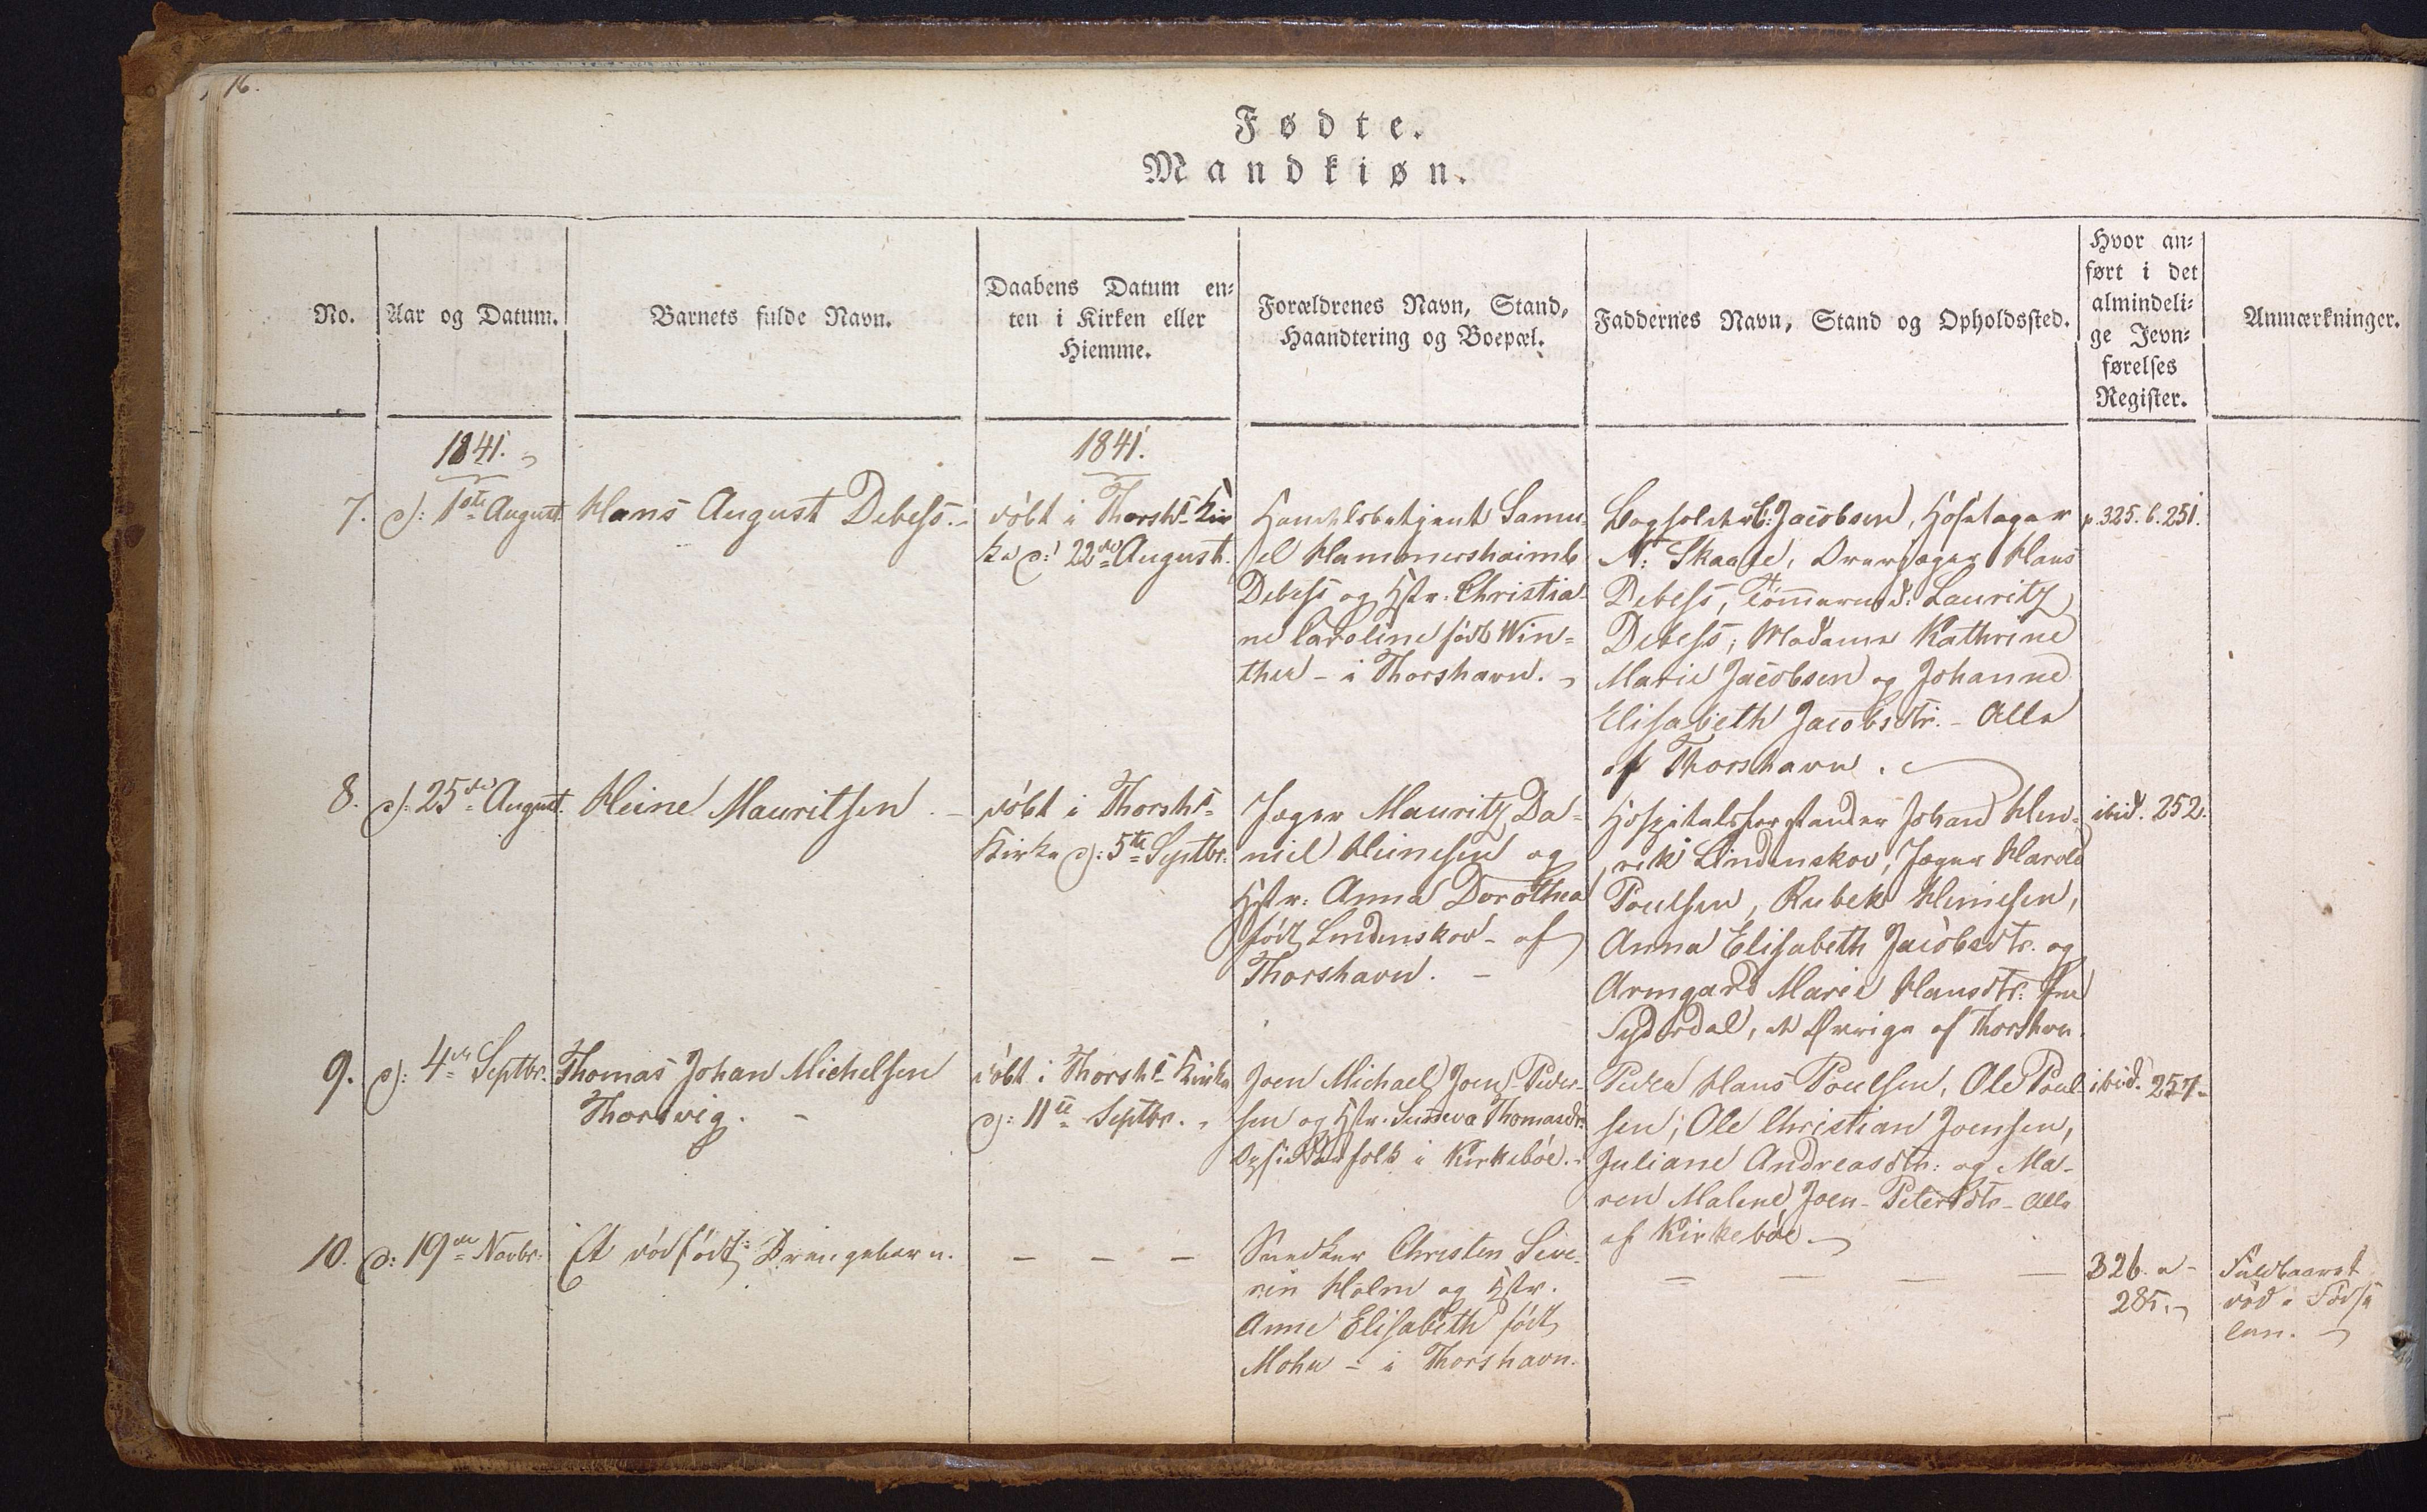 16.
Fødte.
Mandkiøn.
No.
Aar og Datum.
Barnets fulde Navn.
Daabens Datum en-
ten i Kirken eller
Hiemme.
Forældrenes Navn, Stand,
Haandtering og Boepæl.
Faddernes Navn, Stand og Opholdssted.
Hvor an-
ført i det
almindeli-
ge Jevn-
førelses
Register.
Anmærkninger.
1841.
1841.
7.
d: 1ste August.
Hans August Debess.
döbt i Thorsh: Kir
ke d: 22de August.
Handelsbetjent Samu-
el Hammershaimb
Debess og Hstr: Christia-
ne Caroline född Win-
ther - i Thorshavn.
Bogholder C: Jacobsen,
N: Skaale, Hans
Debess, Lauritz
Debess, Madame Kathrine
Marie Jacobsen og Johanne
Elisabeth Jacobsdtr. - Alle
af Thorshavn.
p. 325. b. 251.
8.
d: 25de August.
Heine Mauritsen.
döbt i Thorsh:
Kirke d: 5te Septbr.
Jæger Mauritz Da-
niel Heinesen og
Hstr: Anna Dorothea
född Lindenskov - af
Thorshavn. -
Hospitalsforstander Johan Hen-
rik Lindenskov, Jæger Harold
Poulsen, Rubek Heinesen,
Anna Elisabeth Jacobsdtr. og
Armgard Marie Hansdtr: fra
Syderdal, de Øvrige af Thorshvn.
ibid. 252.
9.
d: 4de Septbr.
Thomas Johan Michelsen
Thorsvig. -
döbt i Thorsh: Kirke
d: 11te Septbr.
Joen Michael Joen-Peder-
sen og Hstr. Sunneva Thomasdr.
folk i Kirkeböe.
Peder Hans Poulsen, Ole Poul-
sen, Ole Christian Joensen,
Juliane Andreasdtr: og Ma-
ren Malene Joen-Petersdtr - alle
af Kirkeböe.
ibid. 257.
10.
d: 19de Novbr.
Et dödfödt Drengebarn.
- - -
Snedker Christen Seve-
rin Holm og Hstr.
Anne Elisabeth född
Mohr - i Thorshavn.
- - - -
326. a -
285.
Fuldbaaret
död i Födse
len.